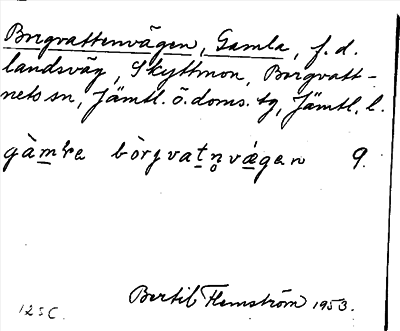 Borgvattenvägen, Gamla, f.d.
landsväg, Skyttmon, Borgvatt-
nets sn, Jämtl. ö. doms. tg, Jämtl. l.
gàm̲ɫa bòrgvat̲n̥vä̲gen 9.
Bertil Flemström 1953.
125C.